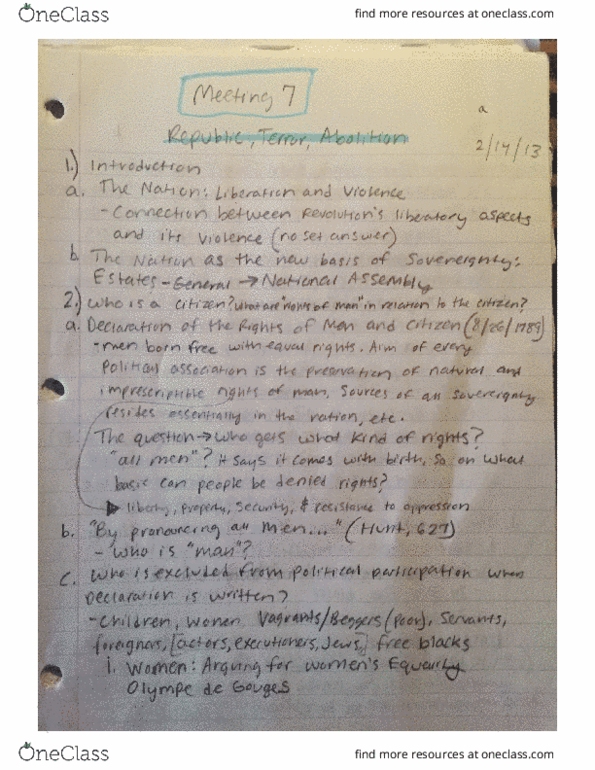 OneClass
find more resources at oneclass.com
Meeting 7
a
Republic, Terror, Abolition
2/14/13
1.) Introduction
a. The Nation: Liberation and Violence
- Connection between Revolution's liberatory aspects
and its violence (no set answer)
b. The Nation as the new basis of Sovereignty:
Estates-General → National Assembly
2.) Who is a citizen? What are "rights of man" in relation to the citizen?
a. Declaration of the Rights of Man and Citizen (8/26/1789)
- men born free with equal rights. Aim of every
political association is the preservation of natural and
imprescriptible rights of man. Sources of all sovereignty
resides essentially in the nation, etc.
The question → who gets what kind of rights?
"all men"? it says it comes with birth, so on what
basic can people be denied rights?
liberty, property, security, & resistance to oppression
b. "By pronouncing all men..." (Hunt, 627)
- who is "man"?
c. Who is excluded from political participation when
Declaration is written?
- Children, women, vagrants/Beggers (poor), servants,
foreigners, [actors, executioners, Jews,] free blacks
i. Women: Arguing for women's Equality
Olympe de Gouges
OneClass
find more resources at oneclass.com